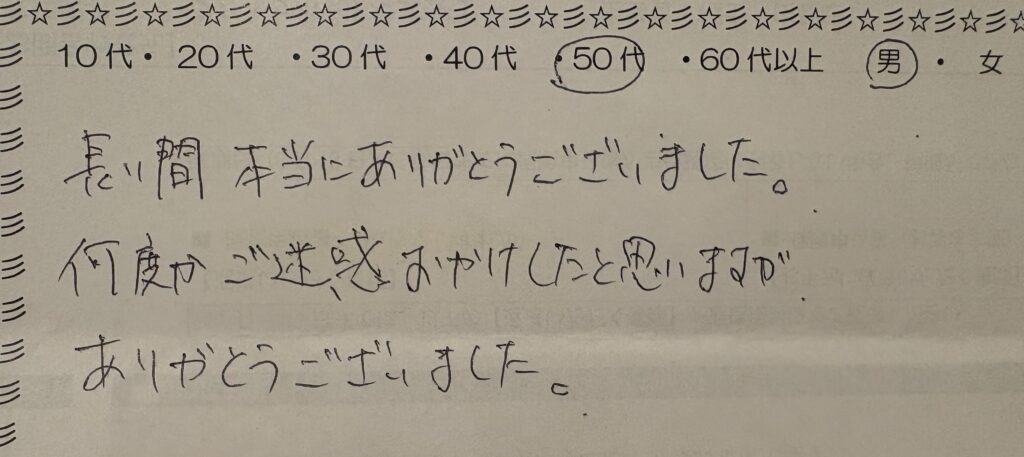 10代・ 20代 ・30代 ・40代 ・50代 ・60代以上 男 ・ 女
長い間 本当にありがとうございました。
何度か ご迷惑おかけしたと思いますが
ありがとうございました。